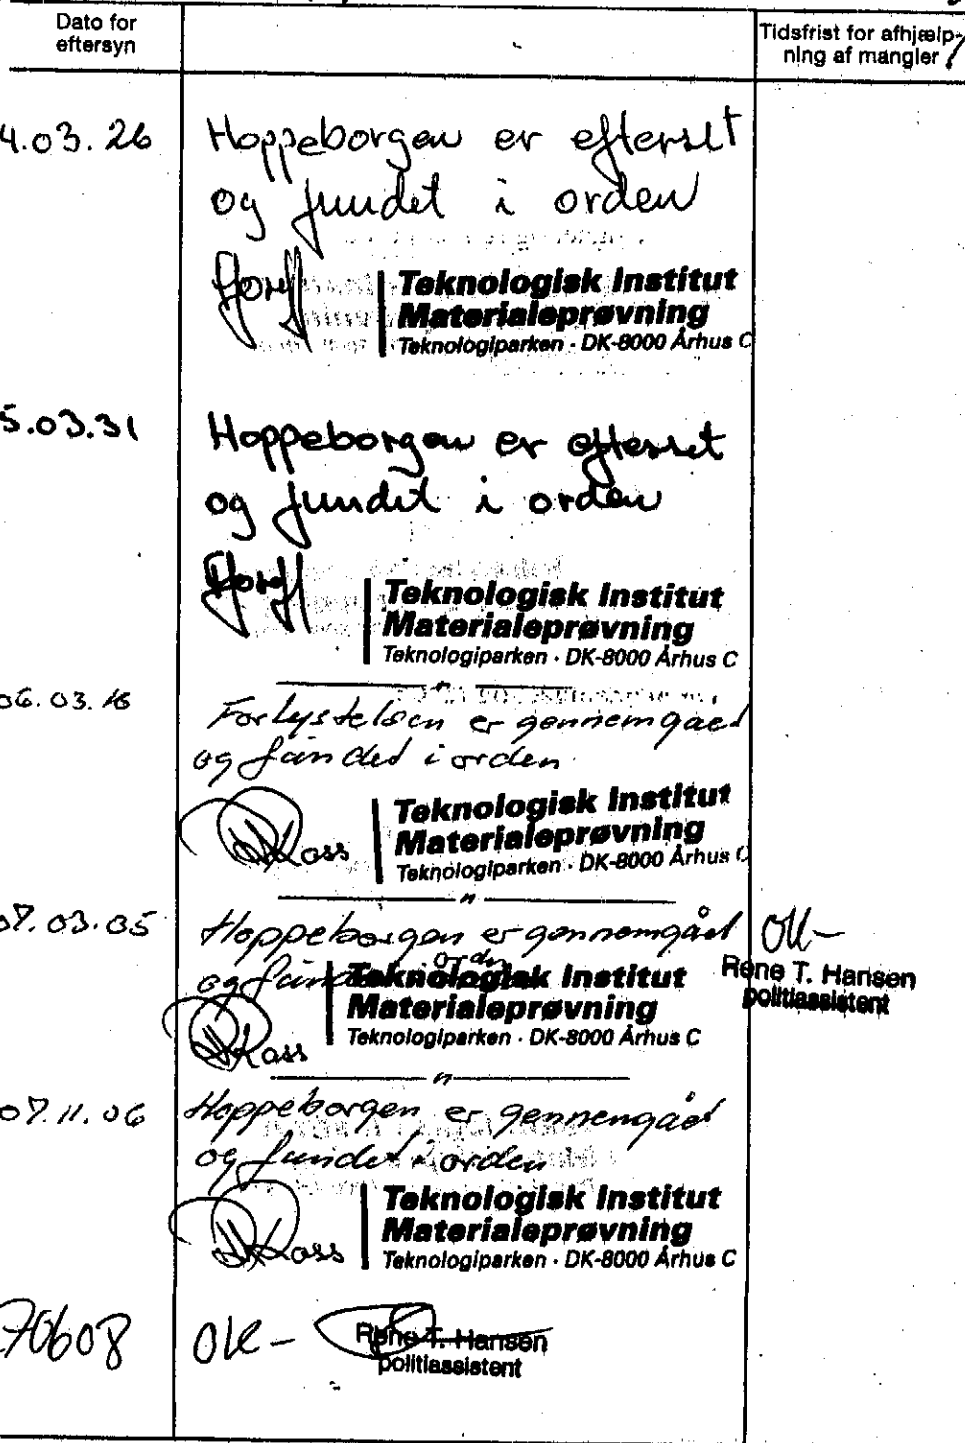 Dato for
eftersyn
Tidsfrist for afhjælp-
ning af mangler
4.03.26
Hoppeborgen er efterset
og fundet i orden
Teknologisk Institut
Materialeprøvning
Teknologiparken · DK-8000 Århus C
5.03.31
Hoppeborgen er efterset
og fundet i orden
Teknologisk Institut
Materialeprøvning
Teknologiparken · DK-8000 Århus C
06.03.16
Forlystelsen er gennemgået
og fundet i orden
Teknologisk Institut
Materialeprøvning
Teknologiparken · DK-8000 Århus C
07.03.05
Hoppeborgen er gennemgået
og fundet i orden
OK-
Rene T. Hansen
politiassistent
Teknologisk Institut
Materialeprøvning
Teknologiparken · DK-8000 Århus C
07.11.06
Hoppeborgen er gennemgået
og fundet i orden
Teknologisk Institut
Materialeprøvning
Teknologiparken · DK-8000 Århus C
70608
OK-
Rene T. Hansen
politiassistent